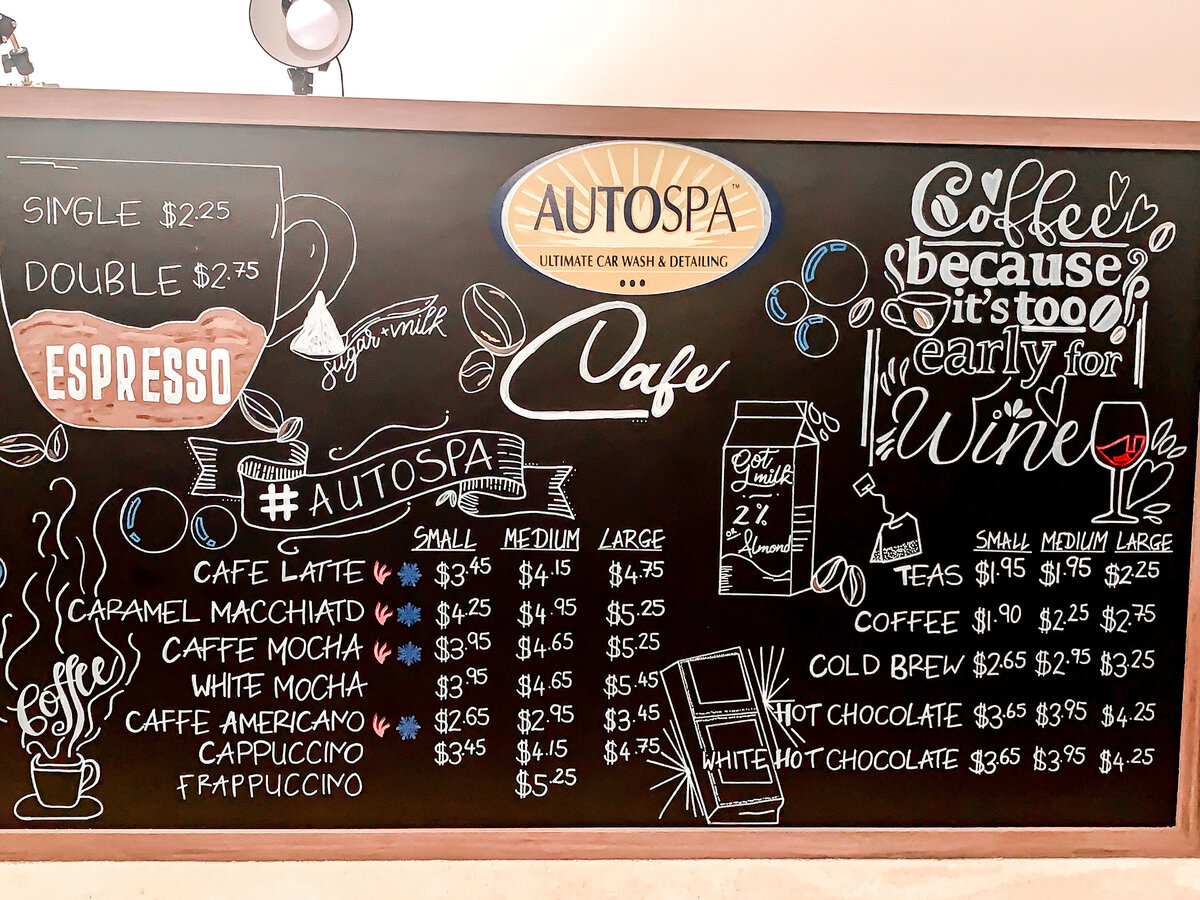 SINGLE $2.25
DOUBLE $2.75
ESPRESSO
sugar + milk
AUTOSPA™
ULTIMATE CAR WASH & DETAILING
Cafe
#AUTOSPA
Coffee
because
it's too
early for
Wine
Got
milk
2%
or
Almond
Coffee
SMALL MEDIUM LARGE
CAFE LATTE $3.45 $4.15 $4.75
CARAMEL MACCHIATO $4.25 $4.95 $5.25
CAFFE MOCHA $3.95 $4.65 $5.25
WHITE MOCHA $3.95 $4.65 $5.45
CAFFE AMERICANO $2.65 $2.95 $3.45
CAPPUCCINO $3.45 $4.15 $4.75
FRAPPUCCINO $5.25
SMALL MEDIUM LARGE
TEAS $1.95 $1.95 $2.25
COFFEE $1.90 $2.25 $2.75
COLD BREW $2.65 $2.95 $3.25
HOT CHOCOLATE $3.65 $3.95 $4.25
WHITE HOT CHOCOLATE $3.65 $3.95 $4.25